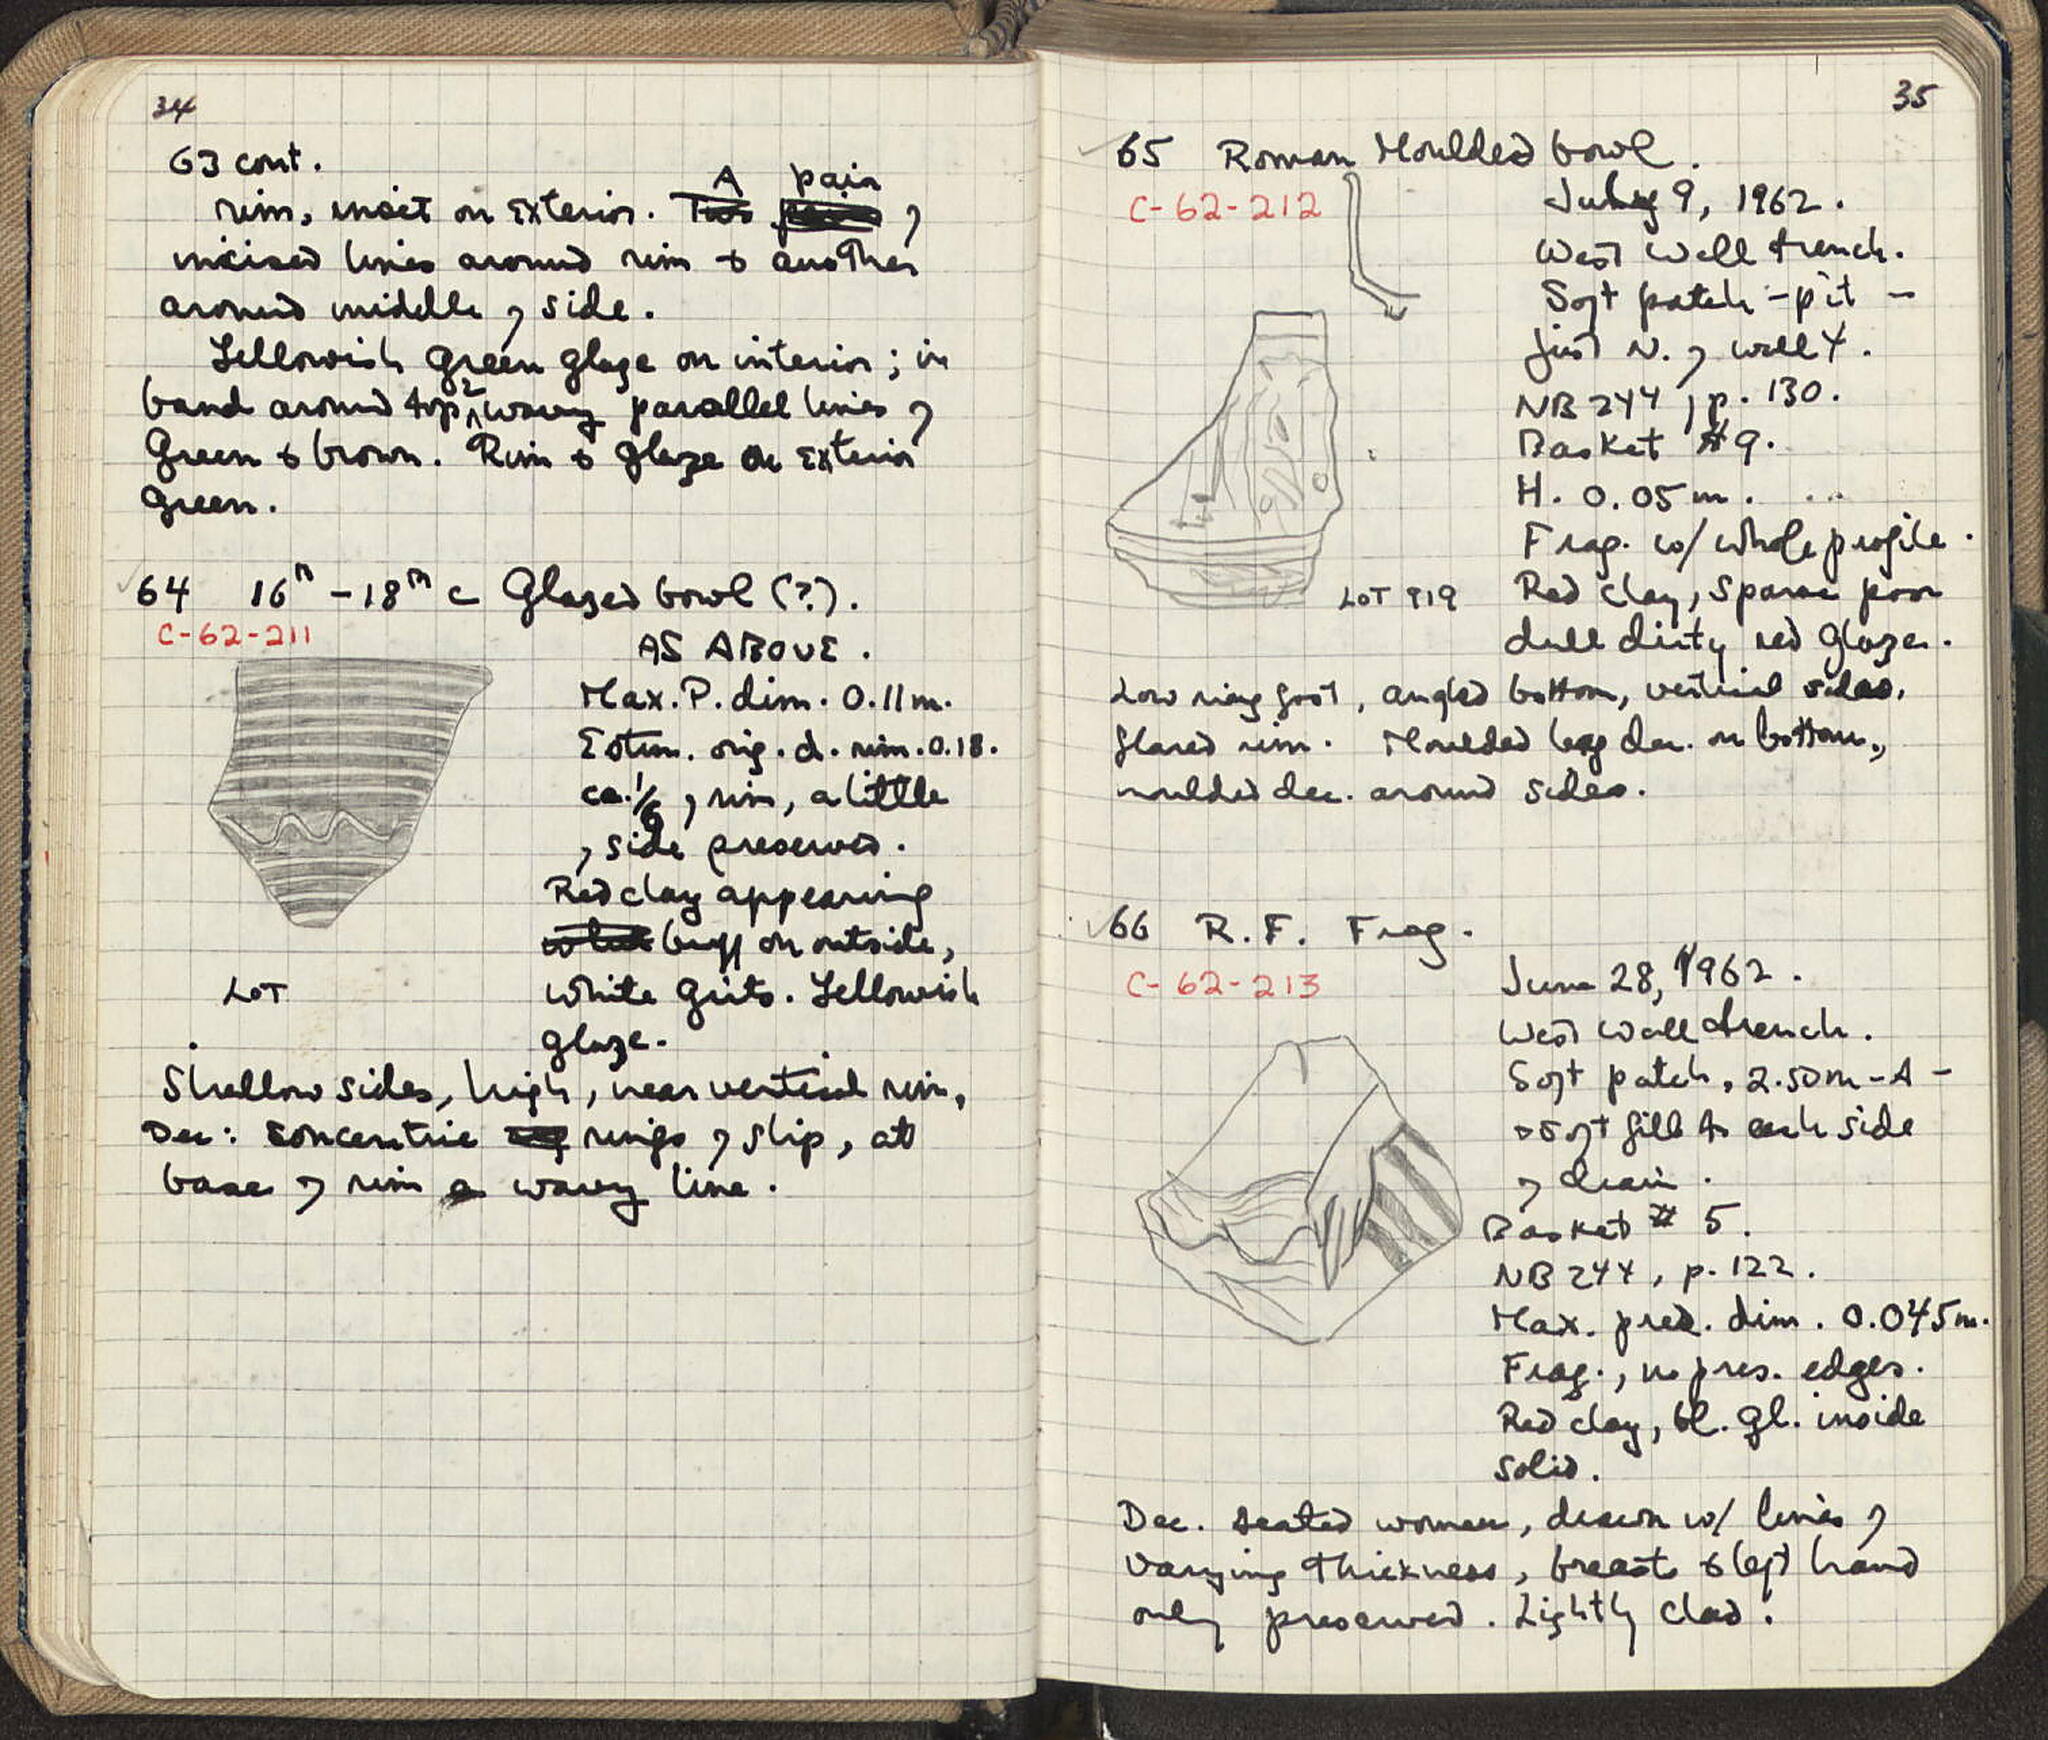 34
63 cont.
A pair
rim, inset on exterior. Two of
incised lines around rim & another
around middle of side.
Yellowish green glaze on interior; in
band around top 2 wavy parallel lines of
Green & brown. Rim & glaze on exterior
green.
64 16th – 18th c Glazed bowl (?).
C-62-211
AS ABOVE.
Max. P. dim. 0.11m.
Estim. orig. d. rim. 0.18.
ca. 1/6 of rim, a little
of side preserved.
Red clay appearing
white buff on outside,
white grits. Yellowish
glaze.
LOT
Shallow sides, high, near vertical rim,
Dec: concentric rings of slip, at
base of rim a wavy line.
35
65 Roman Moulded bowl.
C-62-212
July 9, 1962.
West Wall trench.
Soft patch – pit –
just N. of wall 4.
NB 244, p. 130.
Basket #9.
H. 0.05m.
Frag. w/ whole profile.
LOT 919
Red clay, sparse poor
dull dirty red glaze.
Low ring foot, angled bottom, vertical sides,
flared rim. Moulded leaf dec. on bottom,
moulded dec. around sides.
66 R.F. Frag.
C-62-213
June 28, 1962.
West Wall trench.
Soft patch, 2.50m – A –
soft fill to each side
of drain.
Basket # 5.
NB 244, p. 122.
Max. pres. dim. 0.045m.
Frag., no pres. edges.
Red clay, bl. gl. inside
solid.
Dec. seated woman, drawn w/ lines of
varying thickness, breasts & left hand
only preserved. Lightly clad.